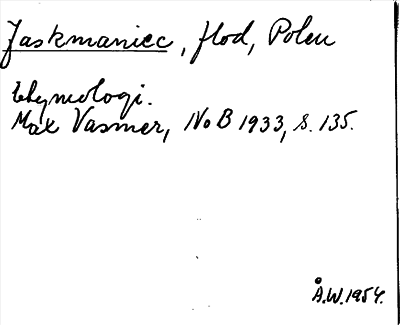 Jaskmaniec, flod, Polen
Etymologi.
Max Vasmer, NoB 1933, s. 135.
Å.W. 1954.